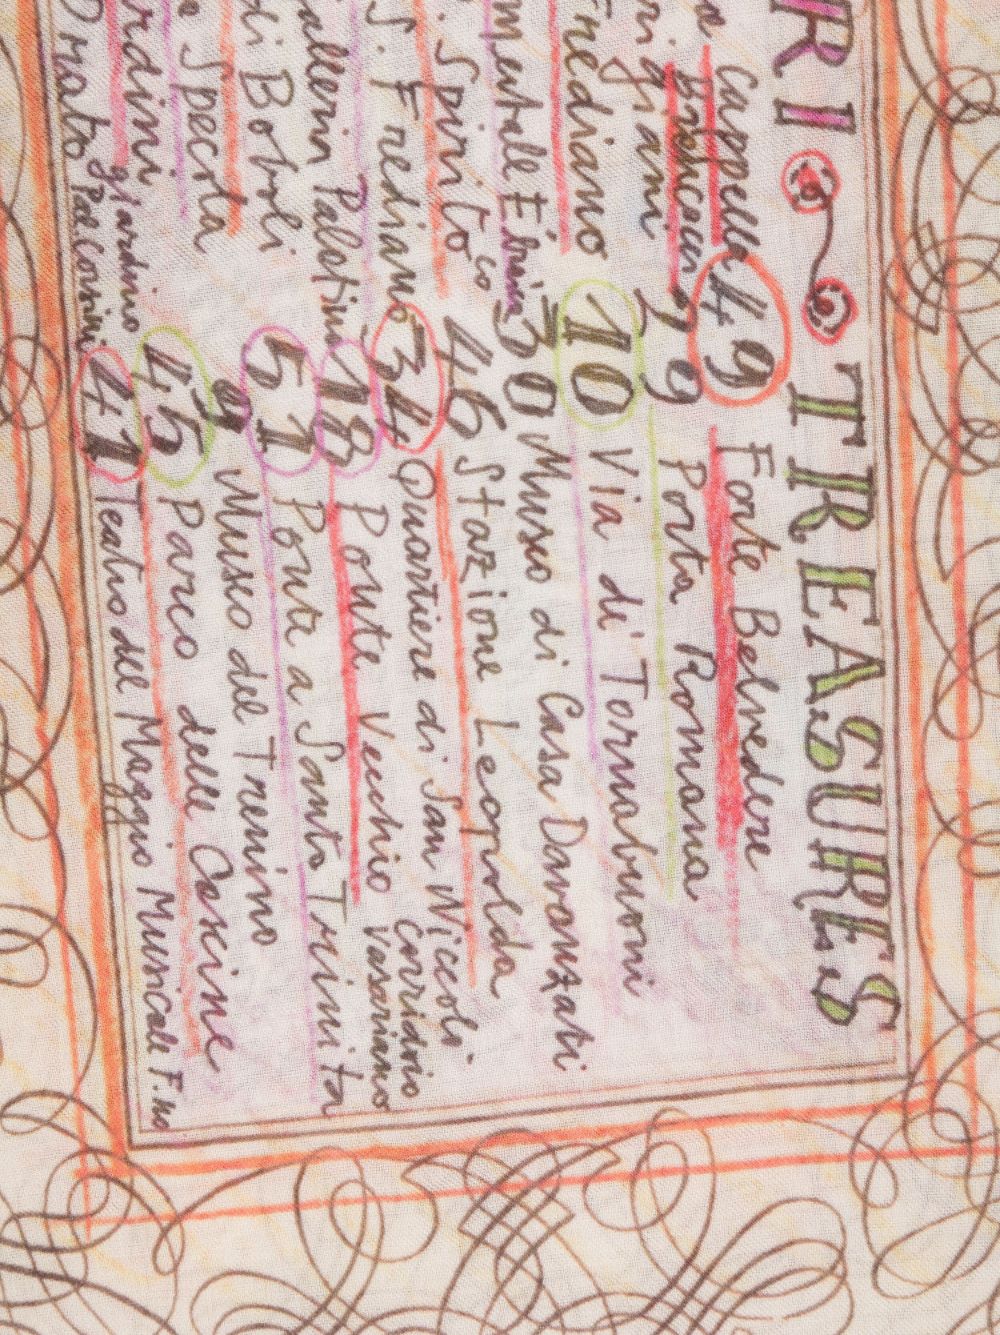 RI TREASURES
Cappello 49 Forte Belvedere
Brancacci
29 Porta Romana
Frediano 10 Via di Tornabuoni
30 Museo di Casa Davanzati
S. Spirito 46 Stazione Leopolda
S. Frediano 34 Quartiere di San Niccolò
Corridoio
Vasariano
Palatina 18 Ponte Vecchio
di Boboli 51 Ponte a Santa Trinita
Specola 9 Museo del Trenino
giardino 45 Parco delle Cascine
Prato Pal Corsini 41 Teatro del Maggio Musicale F.no